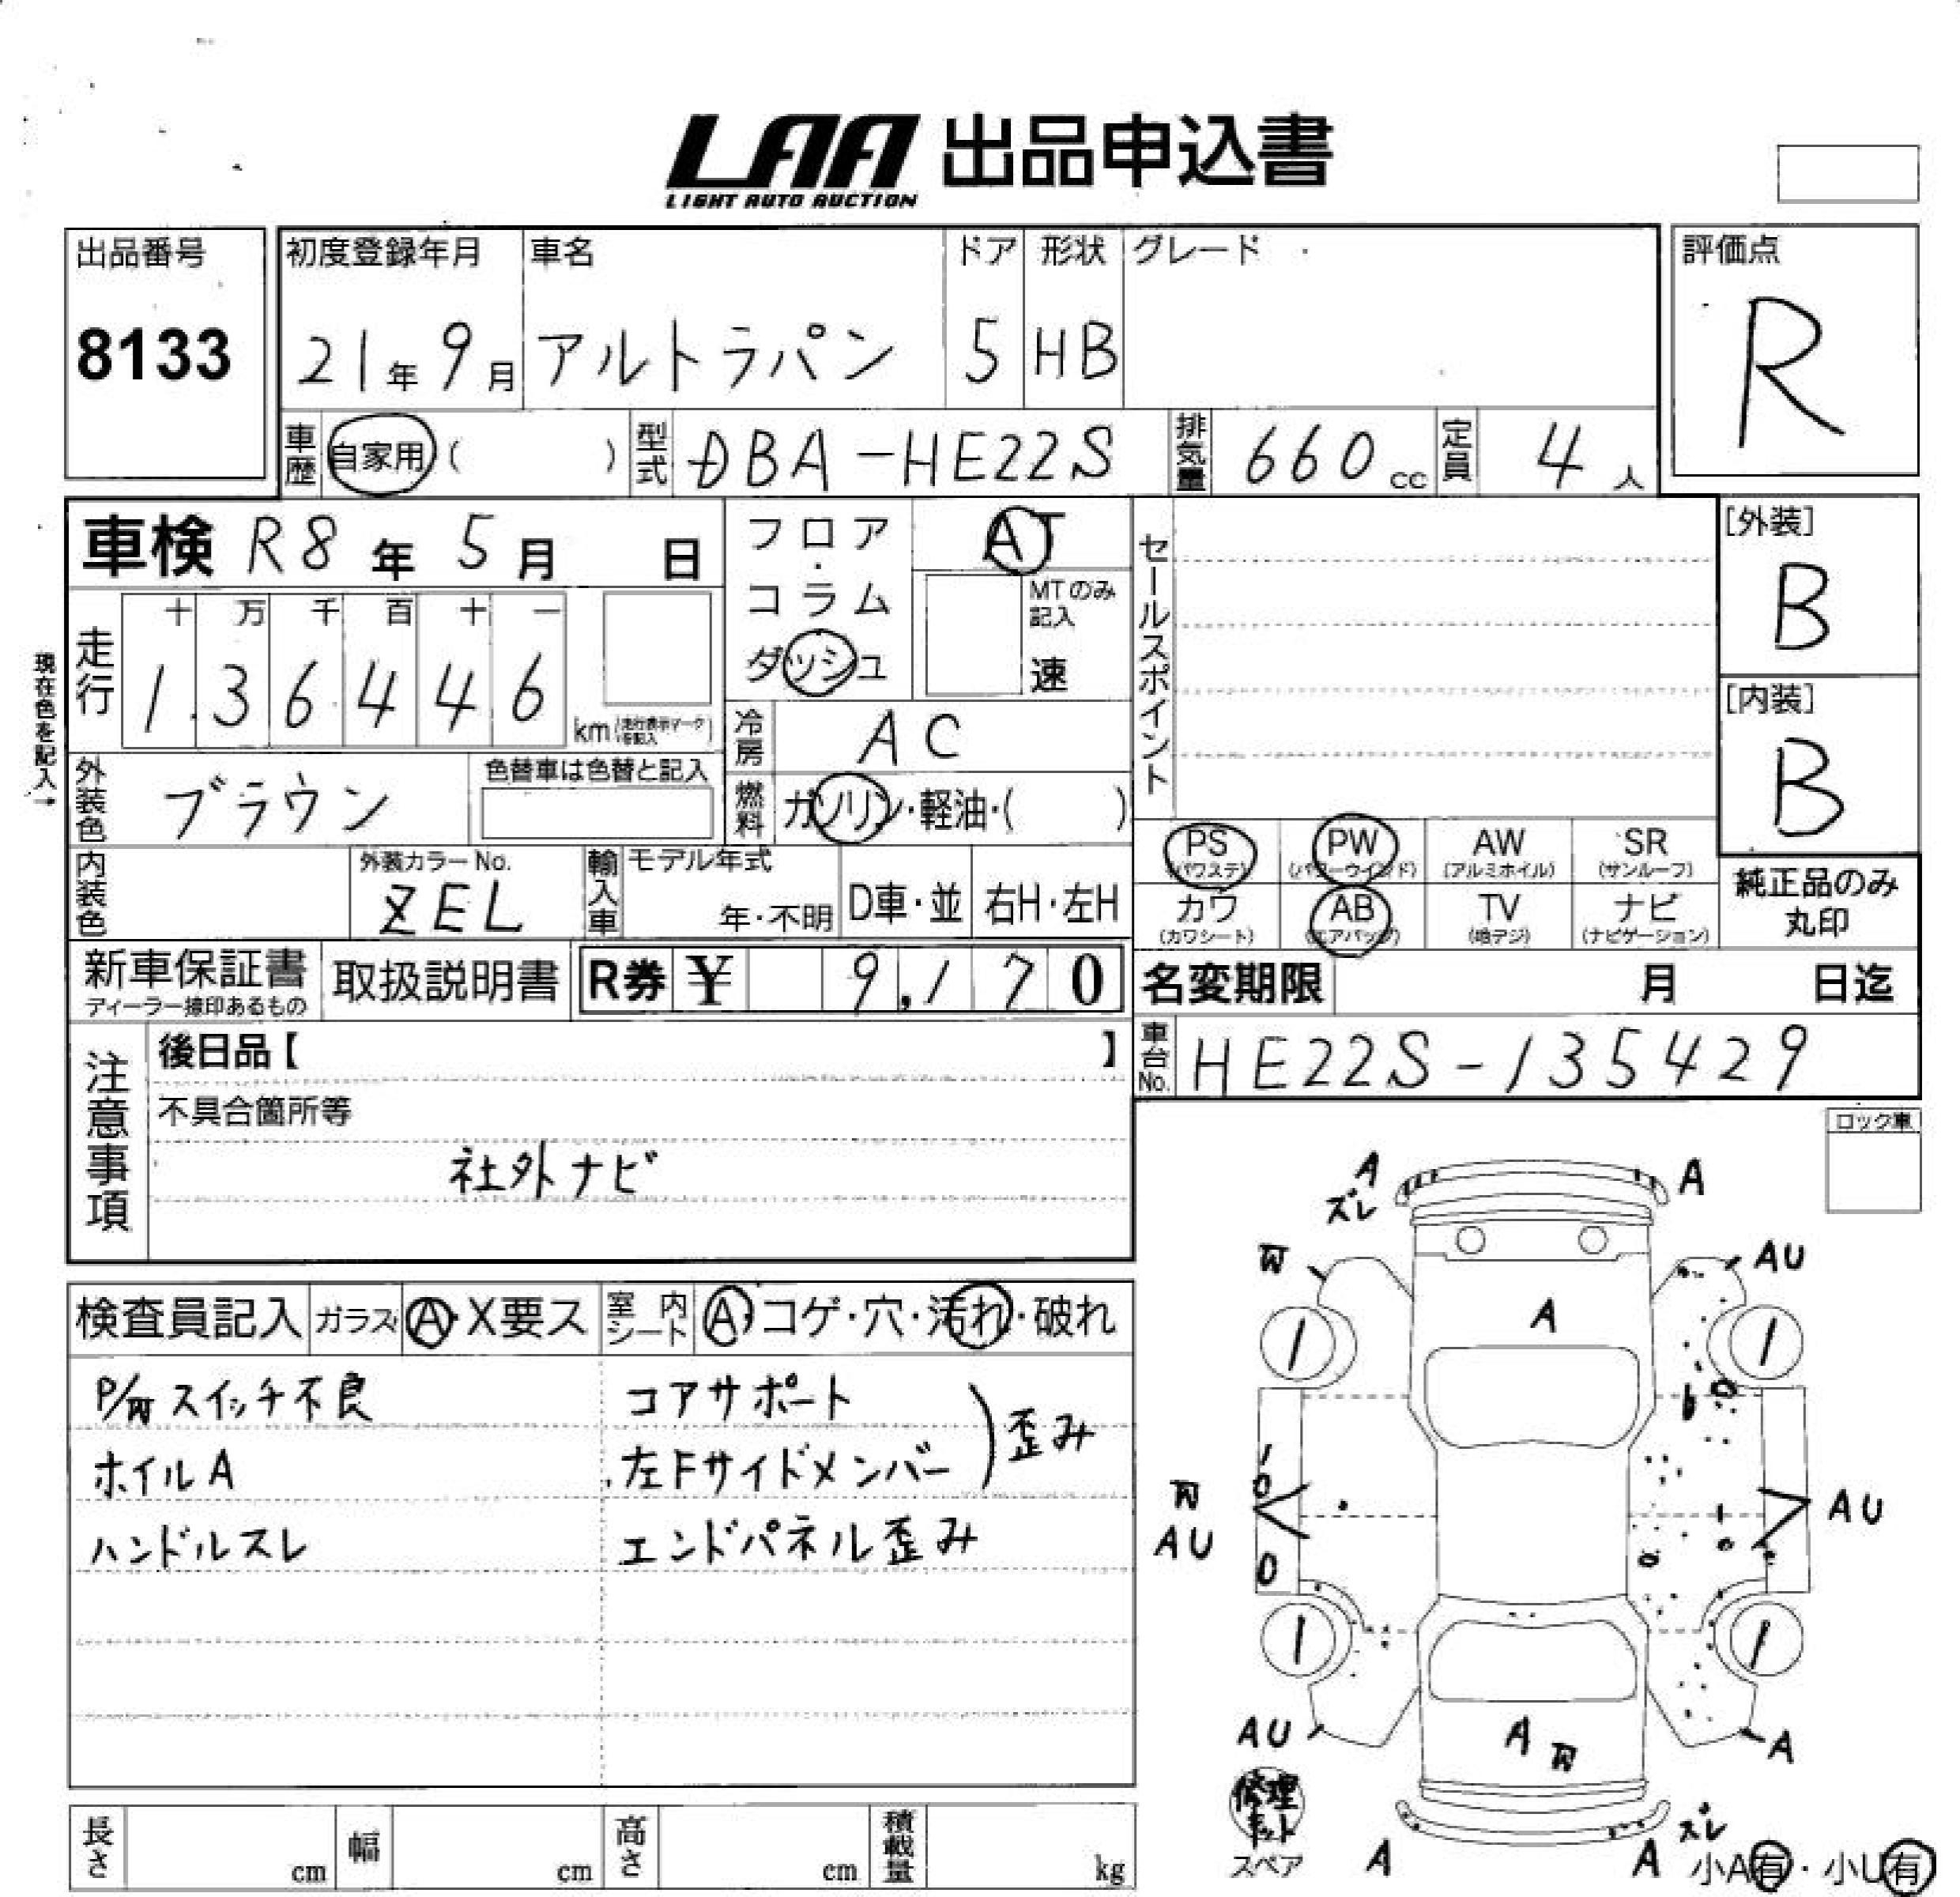 LAA 出品申込書
LIGHT AUTO AUCTION
出品番号
8133
初度登録年月
21年9月
車名
アルトラパン
ドア
5
形状
HB
グレード
評価点
R
車歴 自家用( )
型式 DBA-HE22S
排気量 660cc
定員 4人
車検 R8年 5月 日
フロア・コラム
ダッシュ
AT
MTのみ記入
速
セールスポイント
[外装]
B
現在色を記入→
走行
十 万 千 百 十 一
1 3 6 4 4 6 km
(走行表示マークを記入)
冷房 AC
[内装]
B
外装色 ブラウン
色替車は色替と記入
燃料 ガソリン・軽油・( )
PS (パワステ)
PW (パワーウインド)
AW (アルミホイル)
SR (サンルーフ)
内装色
外装カラーNo.
ZEL
輸入車
モデル年式
年・不明
D車・並
右H・左H
カワ (カワシート)
AB (エアバッグ)
TV (地デジ)
ナビ (ナビゲーション)
純正品のみ
丸印
新車保証書
ディーラー捺印あるもの
取扱説明書
R券 ¥ 9,170
名変期限 月 日迄
車台No. HE22S-135429
注意事項
後日品【 】
不具合箇所等
社外ナビ
ロック車
検査員記入
ガラス A・X要ス
室内シート A・コゲ・穴・汚れ・破れ
スイッチ不良
ホイルA
ハンドルスレ
コアサポート
左Fサイドメンバー
歪み
エンドパネル歪み
A
ズレ
A
AU
A
1
1
AU
AU
1
1
AU
A
A
修理キット
スペア
A
A
ズレ
小A有・小U有
長さ cm
幅 cm
高さ cm
積載量 kg